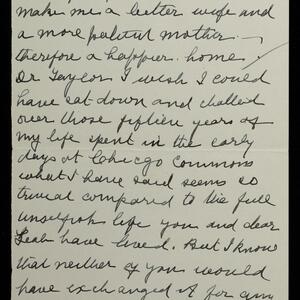 make me a better wife and
a more patient mother -
therefore a happier home.
Dr Taylor I wish I could
have sat down and chatted
over those fiftien years of
my life spent in the early
days at Chicago Commons
what I have said seems so
trivial compared to the full
unselfish life you and dear
Leah have lived. But I know
that neither of you would
have exchanged it for any